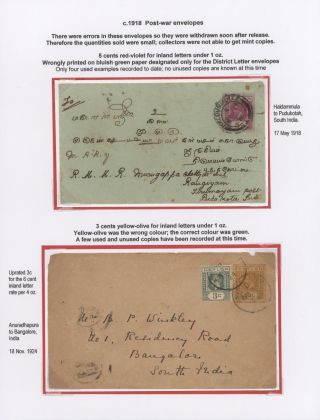 c.1918 Post-war envelopes
There were errors in these envelopes so they were withdrawn soon after release.
Therefore the quantities sold were small; collectors were not able to get mint copies.
5 cents red-violet for inland letters under 1 oz.
Wrongly printed on bluish green paper designated only for the District Letter envelopes
Only four used examples recorded to date; no unused copies are known at this time
To
M. R. R. Y
R. M. M. R. Murugappa
Rangiyam
Haldammula
to Pudukotah,
South India.
17 May 1918
3 cents yellow-olive for inland letters under 1 oz.
Yellow-olive was the wrong colour; the correct colour was green.
A few used and unused copies have been recorded at this time.
Uprated 3c
for the 6 cent
inland letter
rate per 4 oz.
Anuradhapura
to Bangalore,
India
18 Nov. 1924
3c
Mrs A. P. Winkley
No 1, Residency Road
Bangalore
South India